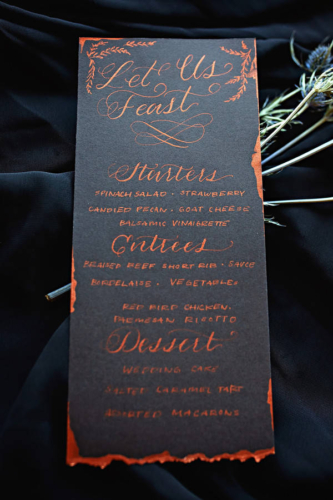 Let Us
Feast
Starters
SPINACH SALAD · STRAWBERRY
CANDIED PECAN · GOAT CHEESE
BALSAMIC VINAIGRETTE
Entrees
BRAISED BEEF SHORT RIB · SAUCE
BORDELAISE · VEGETABLES
RED BIRD CHICKEN,
PARMESAN RISOTTO
Dessert
WEDDING CAKE
SALTED CARAMEL TART
ASSORTED MACARONS